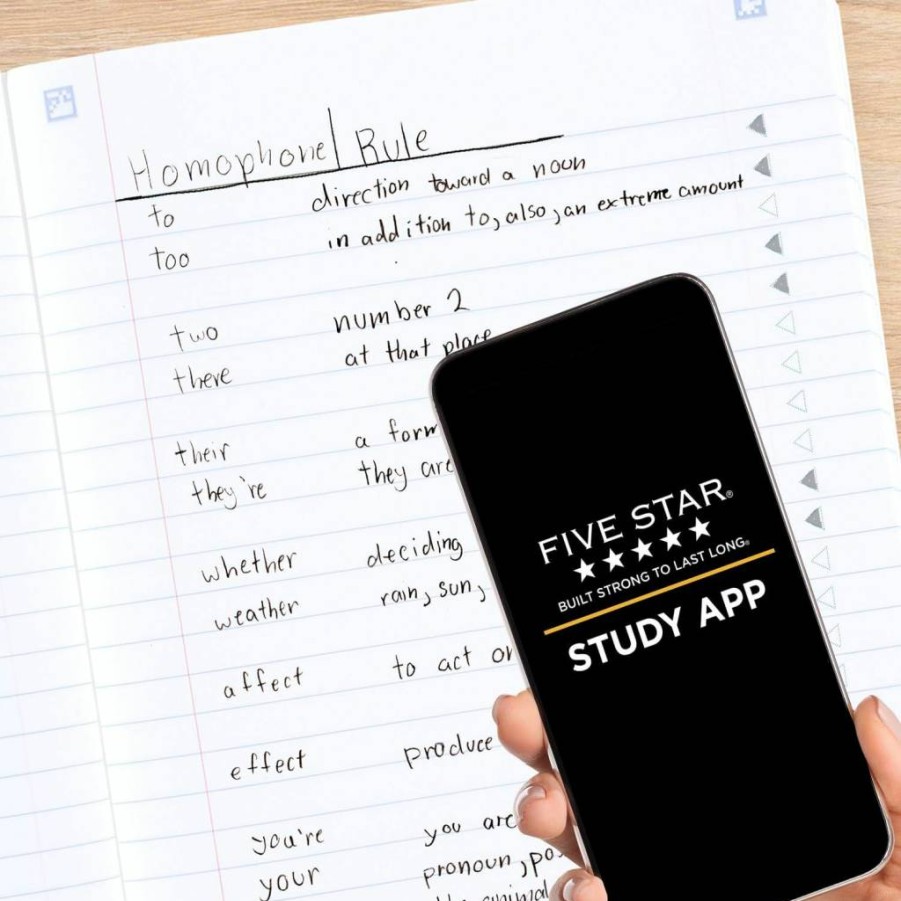 Homophone Rule
to direction toward a noun
too in addition to, also, an extreme amount
two number 2
there at that place
their a form
they're they are
whether deciding
weather rain, sun,
affect to act or
effect produce
you're you are
your pronoun, po
animal
FIVE STAR®
BUILT STRONG TO LAST LONG®
STUDY APP